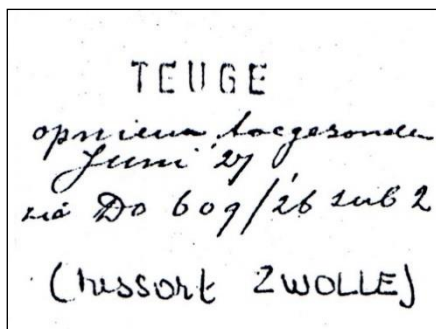 TEUGE
opnieuw toegezonden
Juni '27
zie Do 609/26 sub 2
(ressort ZWOLLE)